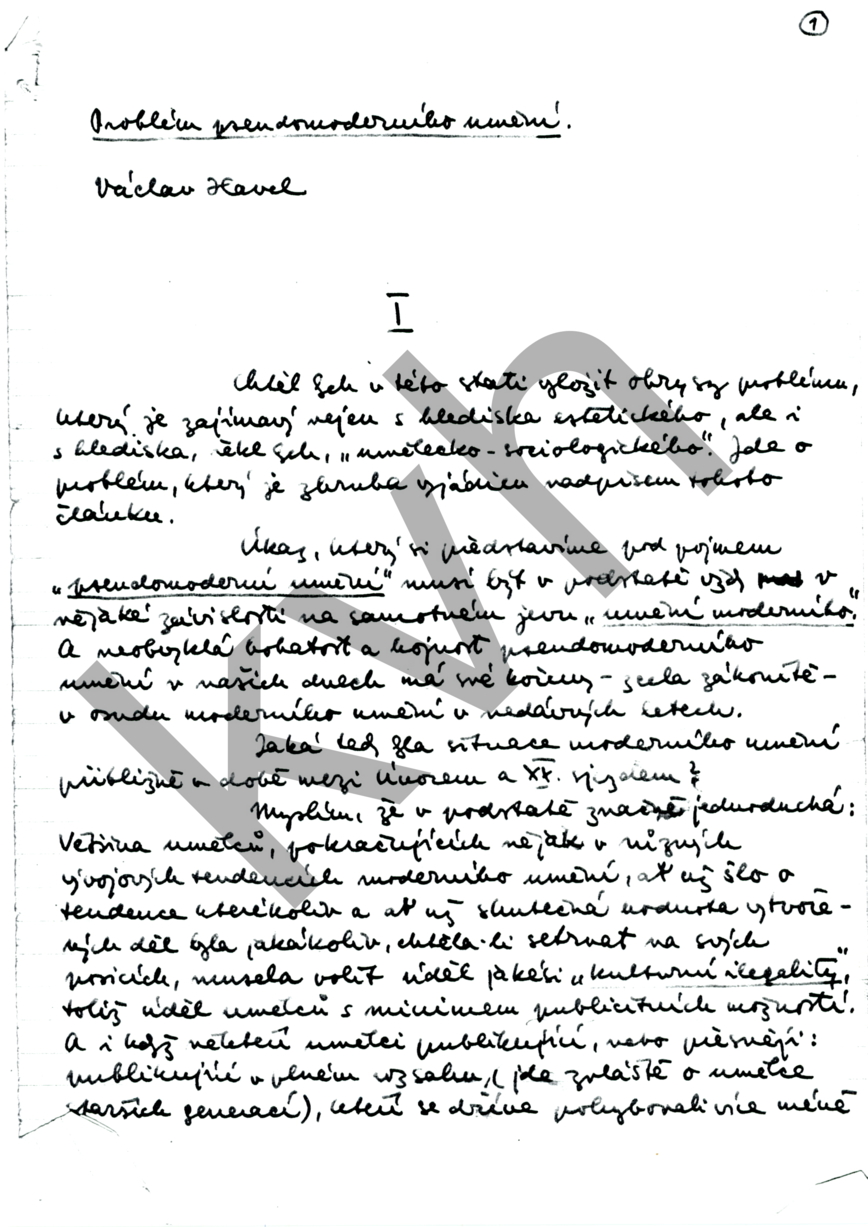 1
Problém pseudomoderního umění.
Václav Havel
I
Chtěl bych v této stati vyložit obrysy problému,
který je zajímavý nejen s hlediska estetického, ale i
s hlediska, řekl bych, „umělecko-sociologického“. Jde o
problém, který je zhruba vyjádřen nadpisem tohoto
článku.
Úkaz, který si představíme pod pojmem
„pseudomoderní umění“ musí být v podstatě vždy v
nějaké závislosti na samotném jevu „umění moderního.“
A neobvyklá bohatost a hojnost pseudomoderního
umění v našich dnech má své kořeny – zcela zákonitě –
v osudu moderního umění v nedávných letech.
Jaká tedy byla situace moderního umění
přibližně v době mezi Únorem a XX. sjezdem?
Myslím, že v podstatě značně jednoduchá:
Většina umělců, pokračujících nějak v různých
vývojových tendencích moderního umění, ať už šlo o
tendence kterékoliv a ať už skutečná hodnota vytvoře-
ných děl byla jakákoliv, chtěla-li setrvat na svých
posicích, musela volit úděl jakési „kulturní ilegality“,
totiž úděl umělců s minimem publicitních možností.
A i když někteří umělci publikující, nebo přesněji:
publikující v plném rozsahu, (jde zvláště o umělce
starších generací), kteří se dříve pohybovali více méně
kvh